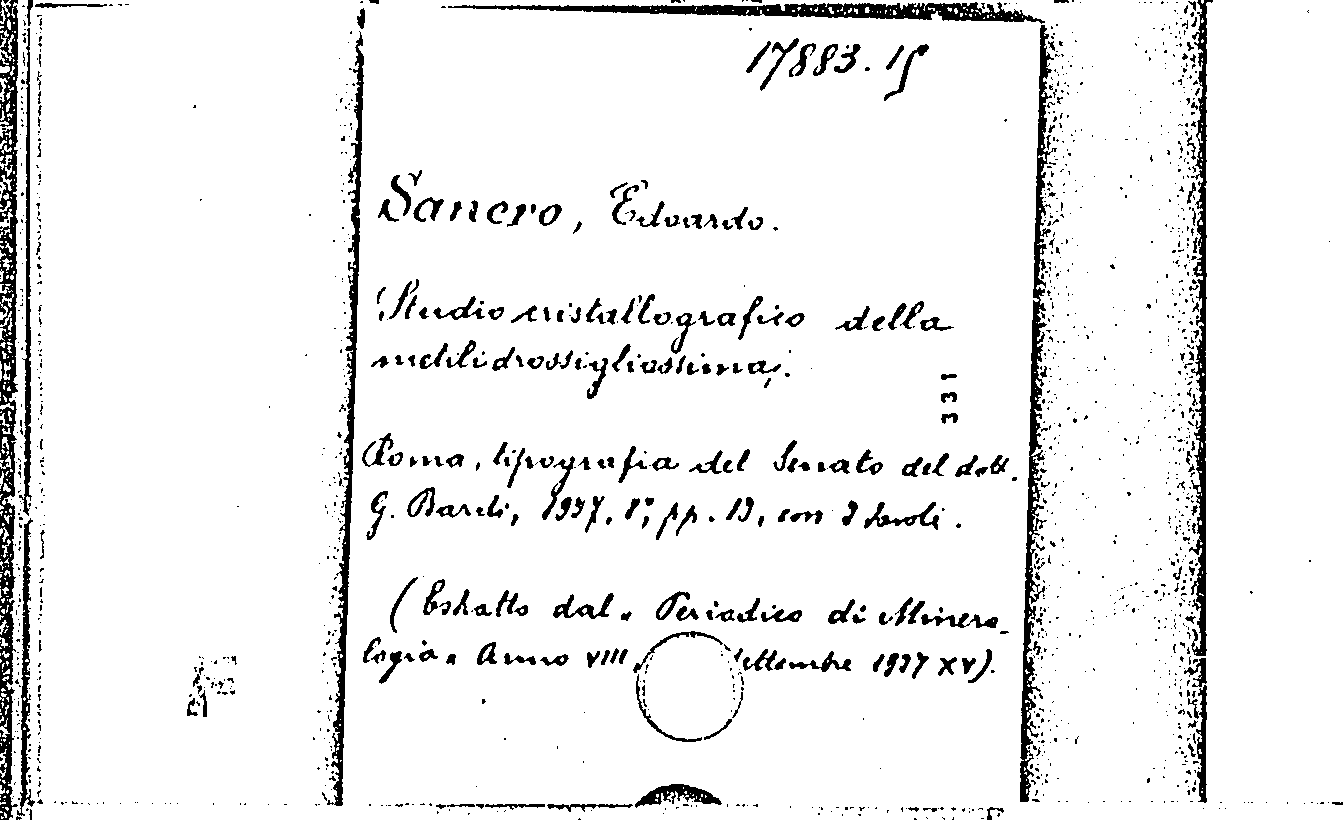 17883.15
Sanero, Edoardo.
Studio cristallografico della
metilidrossigliossima.
331
Roma, tipografia del Senato del dott.
G. Bardi, 1937, 8°, pp. 13, con 2 tavole.
(Estratto dal "Periodico di Minera-
logia" Anno VIII, settembre 1937 XV).